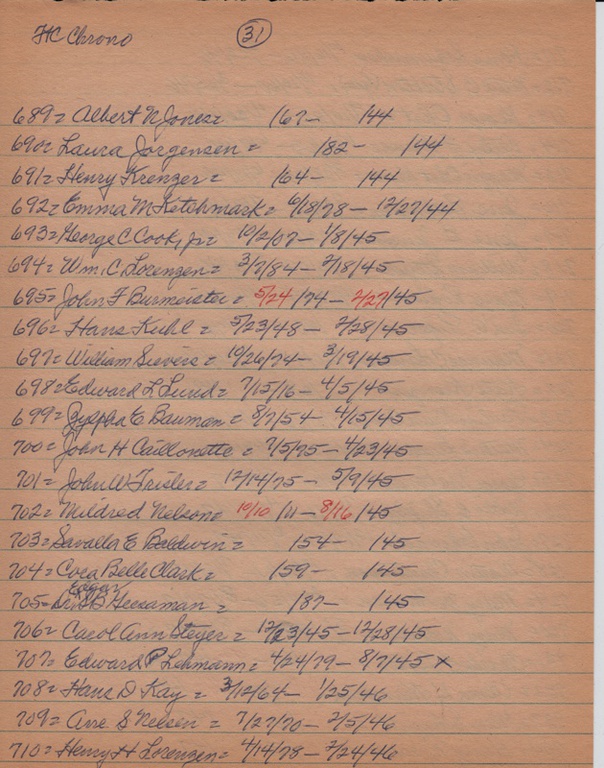 HC Chrono 31
689= Albert N Jones= /67- /44
690= Laura Jorgensen= /82- /44
691= Henry Krenzer= /64- /44
692= Emma M Ketchmark= 6/18/78- 12/27/44
693= George C Cook, Jr= 10/2/07- 1/8/45
694= Wm. C Lorenzen= 3/7/84- 2/18/45
695= John F Burmeister= 5/24/74- 2/27/45
696= Hans Kuhl= 5/23/48- 2/28/45
697= William Sievers= 10/26/74- 3/19/45
698= Edward L Lund= 7/15/16- 4/5/45
699= E Bauman= 8/7/54- 4/15/45
700= John H Caillonette= 7/5/75- 4/23/45
701= John W Frisler= 12/14/75- 5/9/45
702= Mildred Nelson= 10/10/11- 8/16/45
703= Savalla E Baldwin= /54- /45
704= Cora Belle Clark= /59- /45
Edgar
705= Dr. B Geesaman= /87- /45
706= Carol Ann Steger= 12/23/45- 12/28/45
707= Edward P Lehmann= 4/24/79- 8/7/45 x
708= Hans D Kay= 3/12/64- 1/25/46
709= Arre S Nelsen= 7/27/70- 2/5/46
710= Henry H Lorenzen= 4/14/78- 2/24/46